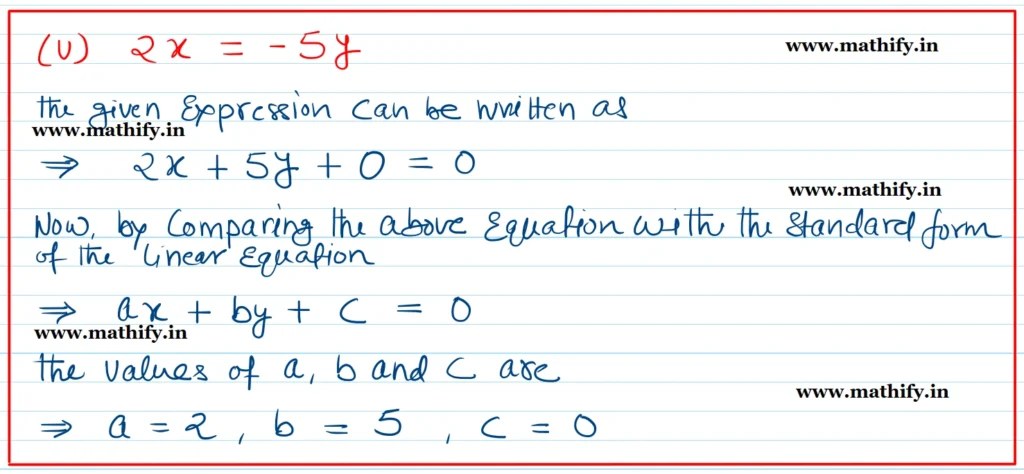 (v) 2x = -5y
www.mathify.in
the given Expression can be written as
www.mathify.in
⇒ 2x + 5y + 0 = 0
www.mathify.in
Now, by Comparing the above Equation with the Standard form
of the linear Equation
⇒ ax + by + c = 0
www.mathify.in
the values of a, b and c are
www.mathify.in
⇒ a = 2, b = 5, c = 0